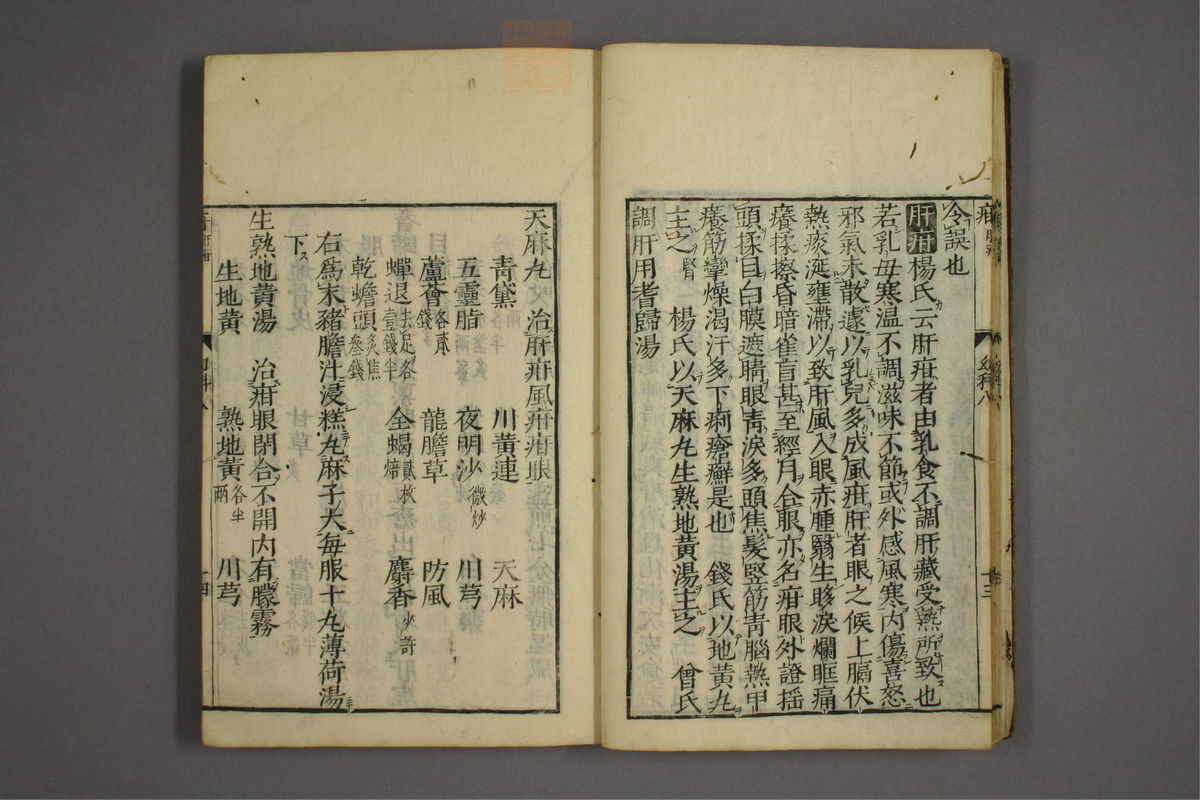 令誤也
肝疳楊氏云肝疳者由乳食不調肝藏受熱所致也
若乳母寒温不調滋味不節或外感風寒內傷喜怒
邪氣未散遽以乳兒多成風疳肝者眼之候上膈伏
熱痰涎壅滯以致肝風入眼赤腫翳生眵淚爛眶痛
癢揉擦昏暗雀盲甚至經月合眼亦名疳眼外證揺
頭揉目白膜遮睛眼青淚多頭焦髮竪筋青腦熱甲
癢筋攣燥渴汗多下痢瘡癬是也 錢氏以地黄丸
主之腎 楊氏以天麻丸生熟地黄湯主之 曾氏
調肝用耆歸湯
天麻丸 治肝疳風疳疳眼
青黛 川黄連 天麻
五靈脂 夜明沙微炒 川芎
蘆薈各貳錢 龍膽草 防風
蟬退去足各壹錢半 全蝎貳枚焙 麝香少許
乾蟾頭炙焦叁錢
右爲末猪膽汁浸糕丸麻子大每服十丸薄荷湯
下
生熟地黄湯 治疳眼閉合不開內有朦霧
生地黄 熟地黄各半兩 川芎
幼科八
十三
幼科八
十四